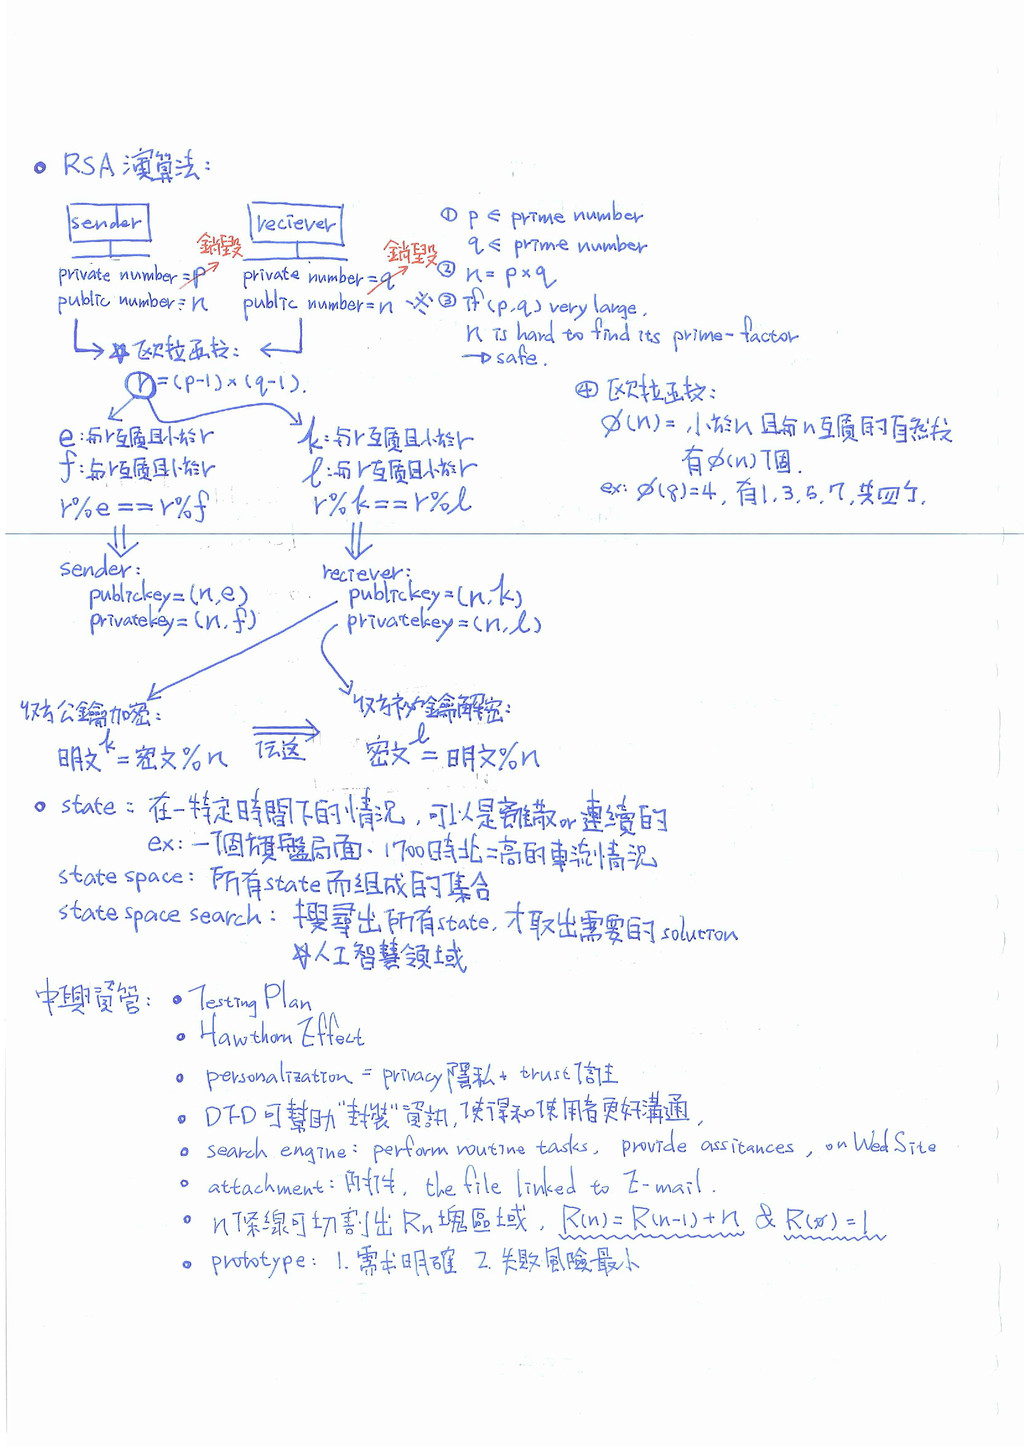 • RSA 演算法:
sender
private number=p 銷毀
public number=n
reciever
private number=q 銷毀
public number=n
① p ∈ prime number
q ∈ prime number
② n = p×q
※ ③ if (p,q) very large.
n is hard to find its prime-factor
→ safe.
☆ 欧拉函数:
r=(p-1)×(q-1).
e:与r互质且小於r
f:与r互质且小於r
r%e == r%f
k:与r互质且小於r
l:与r互质且小於r
r%k == r%l
④ 欧拉函数:
φ(n)= 小於n 且与n互質的自然数
有φ(n)個.
ex: φ(8)=4, 有1,3,5,7,共四个.
sender:
publickey=(n,e)
privatekey=(n,f)
reciever:
publickey=(n,k)
privatekey=(n,l)
收方公鑰加密:
明文^k = 密文%n
伝送
收方私鑰解密:
密文^l = 明文%n
• state: 在一特定時間下的情況,可以是離散or連續的
ex: 一個棋盤局面、1700時北二高的車流情況
state space: 所有state而組成的集合
state space search: 搜尋出所有state,才取出需要的solution
☆人工智慧領域
中興資管: • Testing Plan
• Hawthorn Effect
• personalization = privacy隱私 + trust信任
• DFD可幫助"封裝"資訊,使得和使用者更好溝通,
• search engine: perform routine tasks, provide assitances, on Wed Site
• attachment: 附件, the file linked to E-mail.
• n條線可切割出Rn塊區域, R(n)=R(n-1)+n & R(0)=1
• prototype: 1. 需求明確 2. 失敗風險最小